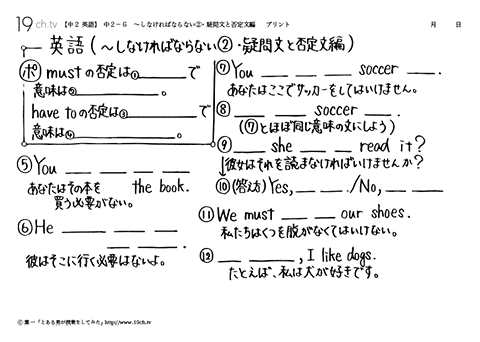 19ch.tv 【中２ 英語】 中２−６ 〜しなければならない②・疑問文と否定文編 プリント 月 日
英語(〜しなければならない②・疑問文と否定文編)
ポ mustの否定は①______で
意味は②__________。
have toの否定は③________で
意味は④__________。
⑤You __ __ __ __
the book.
あなたはその本を
買う必要がない。
⑥He __ __ __
__ __.
彼はそこに行く必要はないよ。
⑦You __ __ __ soccer __.
あなたはここでサッカーをしてはいけません。
⑧ __ __ soccer __.
(⑦とほぼ同じ意味の文にしよう)
⑨ __ she __ __ read it?
↓彼女はそれを読まなければいけませんか?
⑩(答え方)Yes, __ __./No, __ __.
⑪We must __ __ our shoes.
私たちはくつを脱がなくてはいけない。
⑫ __ __, I like dogs.
たとえば、私は犬が好きです。
© 葉一「とある男が授業をしてみた」http://www.19ch.tv